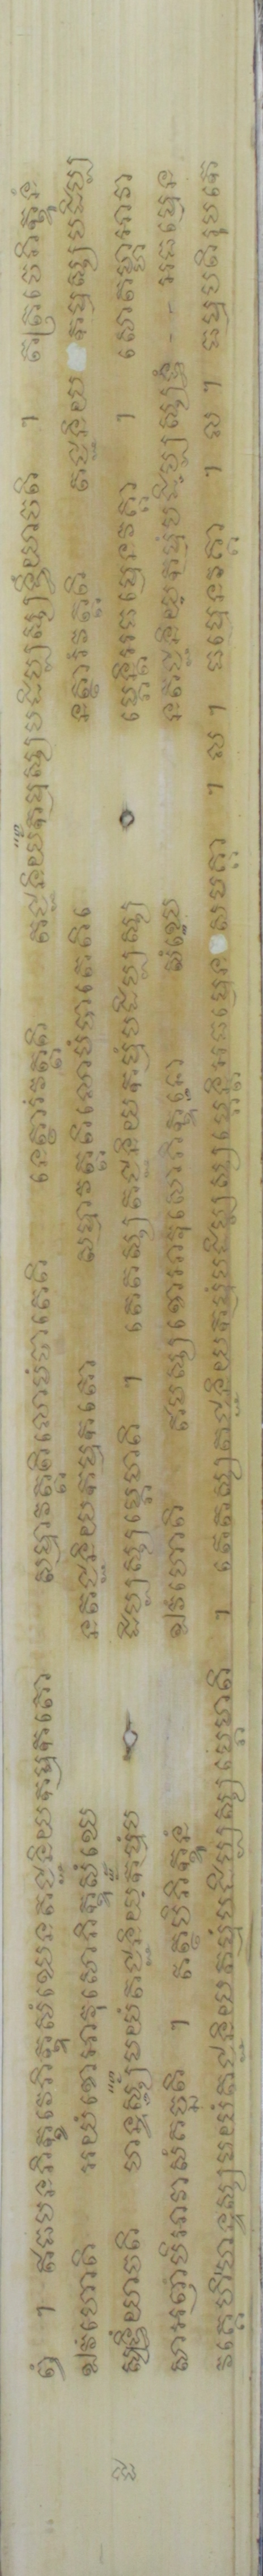 ពុំ ។ ឥធបនភិក្ខវេភិក្ខុសំឃេនតជ្ជនិយកម្មកតោ សម្មាវត្តតិលោមំបាតេតិ នេត្ថារំវត្តតិ តជ្ជនិយកម្មស្សបដិប្បស្សទ្ធិំយាចតិ ។ តត្រចេភិក្ខូនំ
ឯវំហោតិ អយំខោអាវុសោភិក្ខុសំឃេ នតជ្ជនិយកម្មកតោ សម្មាវត្តតិលោមំបាតេតិនេ នត្ថារំវត្តតិ តជ្ជនិយ កម្មស្សបដិប្ប
ស្សទ្ធិំយាចតិ ហន្ទស្សមយំតជ្ជនិយកម្មំប ដិប្បស្សម្ភេមាតិ ។ តេតស្សតជ្ជនិយកម្មំបដិប្បស្ស ម្ភេន្តិអធម្មេនវគ្គា ។ សោតម្ហាអាវា
សាអញ្ញំបិអាវាសំគច្ឆតិ ។ តត្ថបិភិក្ខូនំ ឯវំហោតិ ឥមស្សខោអាវុសោភិក្ខុនោ សំឃេ នតជ្ជនិយកម្មំបដិប្បស្សទ្ធំ - - អធម្មេន
វគ្គេហិហន្ទស្សមយំតជ្ជនិយកម្មំបដិប្បស្សម្ភេមាតិ ។ តេតស្សតជ្ជនិយកម្មំបដិប្បស្សម្ភេន្តិអធម្មេន សមគ្គា ។ ល ។ ធម្មេនវគ្គា ។ ល ។ ធម្មបតិរូបកេ